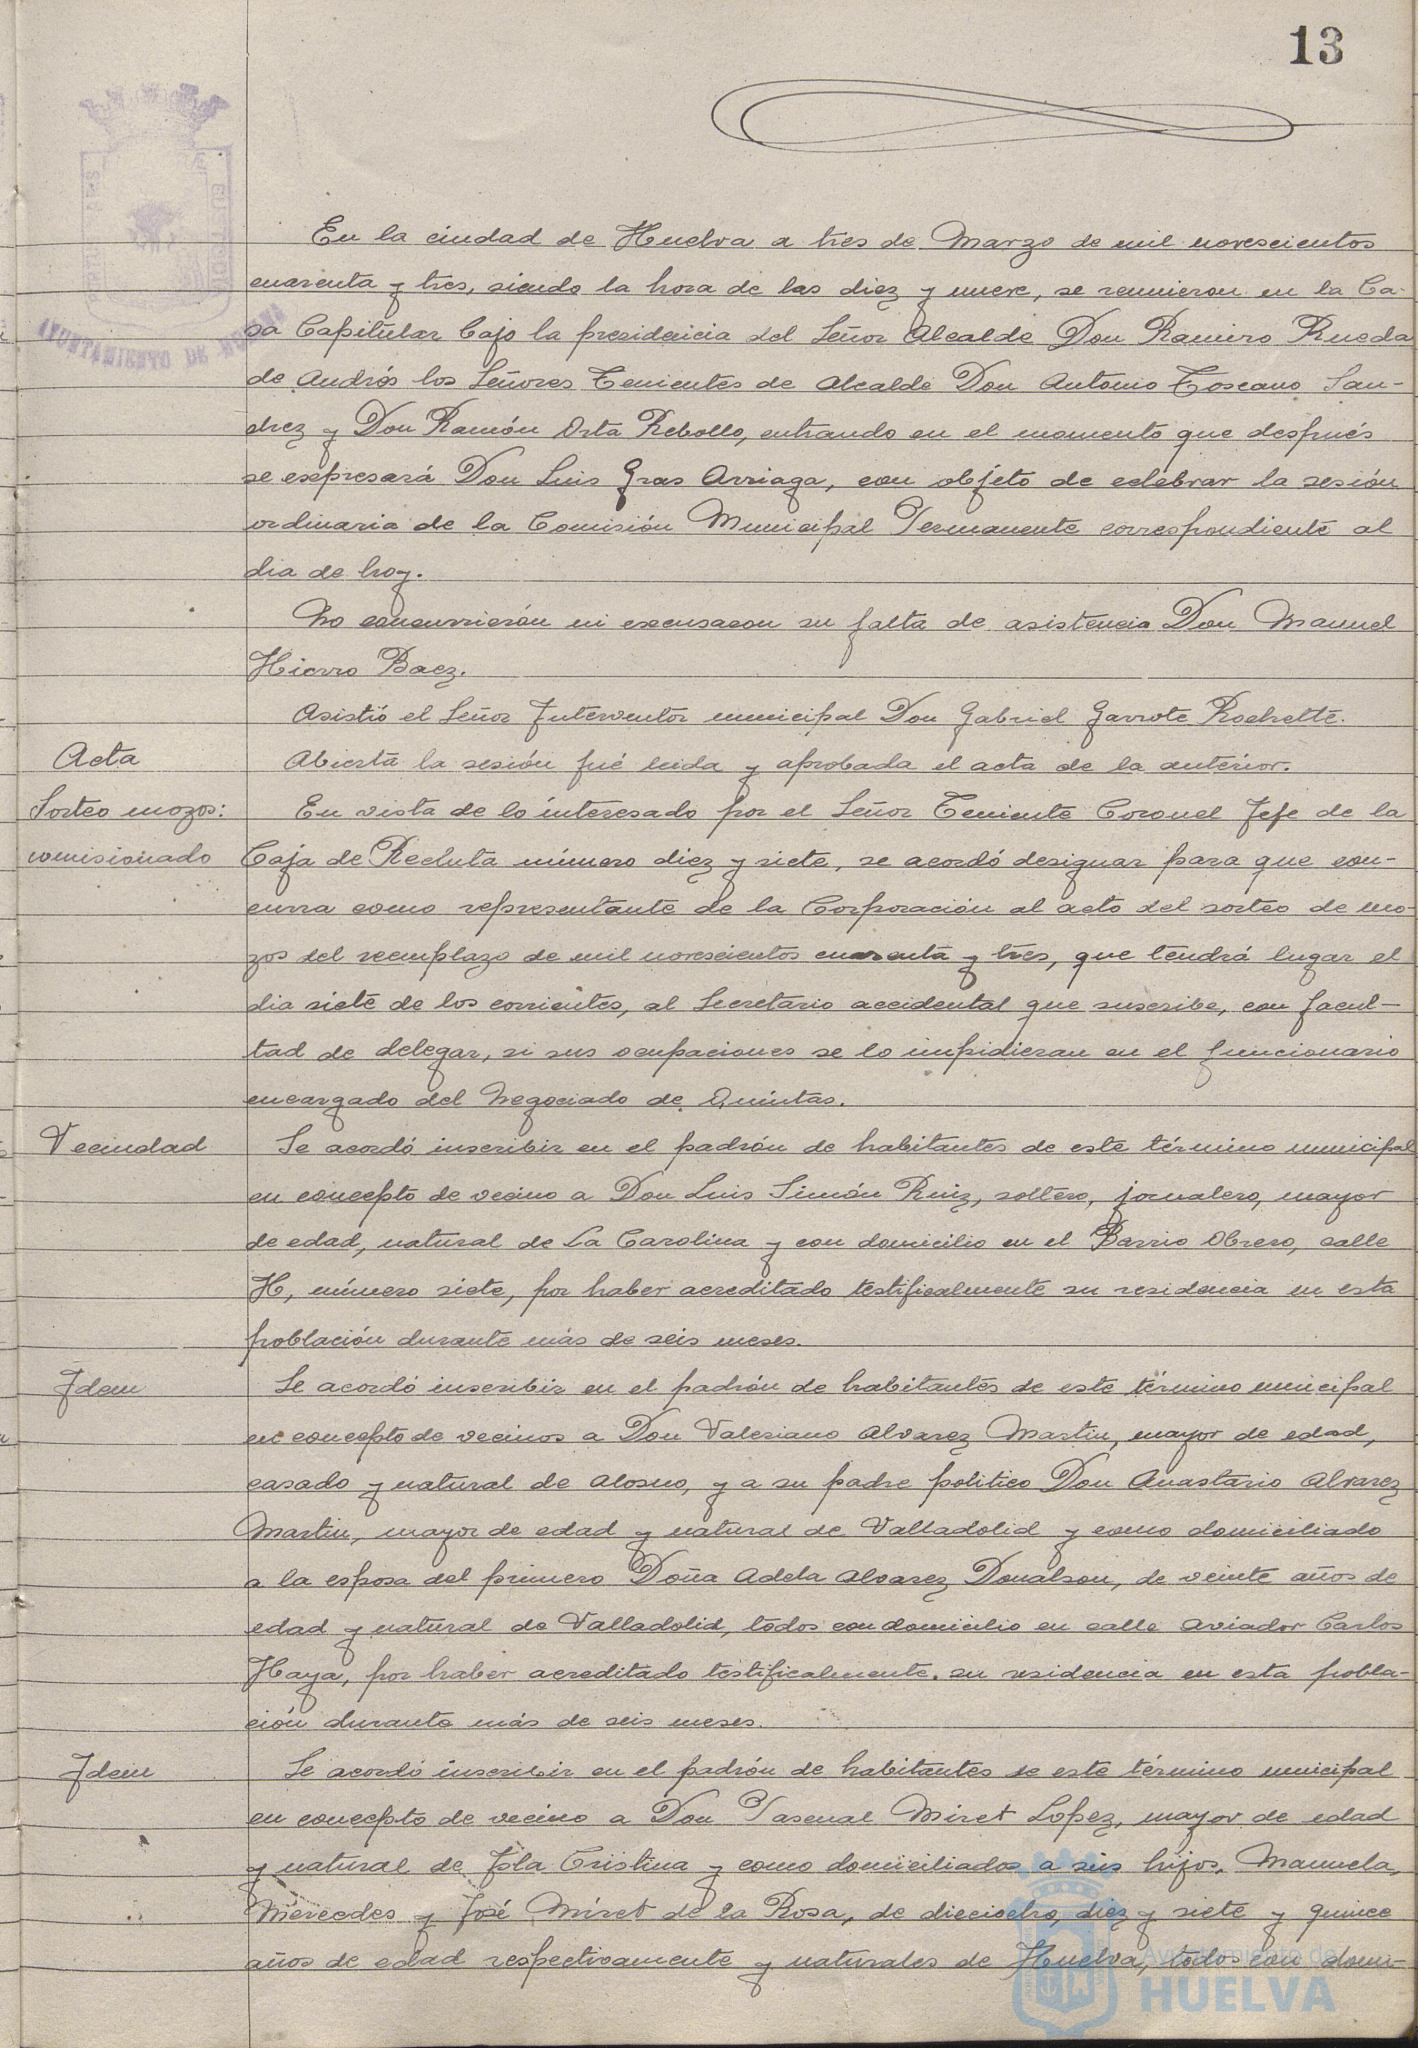 13
En la ciudad de Huelva a tres de Marzo de mil novescientos
cuarenta y tres, siendo la hora de las diez y nueve, se reunieron en la Ca-
sa Capitular bajo la presidencia del Señor Alcalde Don Ramiro Rueda
de Andrés los Señores Tenientes de Alcalde Don Antonio Toscano San-
chez y Don Ramón Orta Rebollo, entrando en el momento que después
se expresará Don Luis Gras Arriaga, con objeto de celebrar la sesión
ordinaria de la Comisión Municipal Permanente correspondiente al
dia de hoy.
No concurrierón ni excusaron su falta de asistencia Don Manuel
Hierro Baez.
Asistió el Señor Interventor municipal Don Gabriel Garrote Rochette.
Acta
Abierta la sesión fué leida y aprobada el acta de la anterior.
Sorteo mozos:
En vista de lo interesado por el Señor Teniente Coronel Jefe de la
comisionado
Caja de Recluta número diez y siete, se acordó designar para que con-
curra como representante de la Corporación al acto del sorteo de mo-
zos del reemplazo de mil novescientos cuarenta y tres, que tendrá lugar el
dia siete de los corrientes, al Secretario accidental que suscribe, con facul-
tad de delegar, si sus ocupaciones se lo impidieran en el funcionario
encargado del Negociado de Quintas.
Vecindad
Se acordó inscribir en el padrón de habitantes de este término municipal
en concepto de vecino a Don Luis Simón Ruiz, soltero, jornalero, mayor
de edad, natural de La Carolina y con domicilio en el Barrio Obrero, calle
H, número siete, por haber acreditado testificalmente su residencia en esta
población durante más de seis meses.
Idem
Se acordó inscribir en el padrón de habitantes de este término municipal
en concepto de vecinos a Don Valeriano Alvarez Martin, mayor de edad,
casado y natural de Alosno, y a su padre politico Don Anastario Alvarez
Martin, mayor de edad y natural de Valladolid y como domiciliado
a la esposa del primero Doña Adela Alvarez Donalson, de veinte años de
edad y natural de Valladolid, todos con domicilio en calle Aviador Carlos
Haya, por haber acreditado testificalmente su residencia en esta pobla-
ción durante más de seis meses.
Idem
Se acordó inscribir en el padrón de habitantes de este término municipal
en concepto de vecino a Don Pascual Miret Lopez, mayor de edad
y natural de Isla Cristina y como domiciliados a sus hijos, Manuela,
Mercedes y José Miret de la Rosa, de dieciocho, diez y siete y quince
años de edad respectivamente y naturales de Huelva, todos con domi-
AYUNTAMIENTO DE HUELVA
Ayuntamiento de
HUELVA